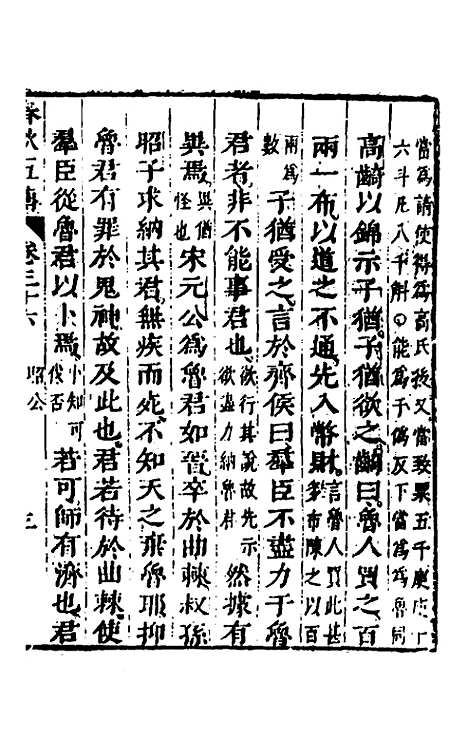 當爲請使得爲高氏後又當致粟五千庾庾十
六斗凡八千斛〇能爲于僞反下當爲爲魯同
高齮以錦示子猶子猶欲之齮曰魯人買之百
兩一布以道之不通先入幣財言魯人買此甚多布陳之以百
兩爲數子猶受之言於齊侯曰羣臣不盡力于魯
君者非不能事君也欲行其說故先示欲盡力納魯君然據有
異焉異猶怪也宋元公爲魯君如晉卒於曲棘叔孫
昭子求納其君無疾而死不知天之棄魯耶抑
魯君有罪於鬼神故及此也君若待於曲棘使
羣臣從魯君以卜焉卜知可伐否若可師有濟也君
春秋五傳 卷三十六 昭公 三